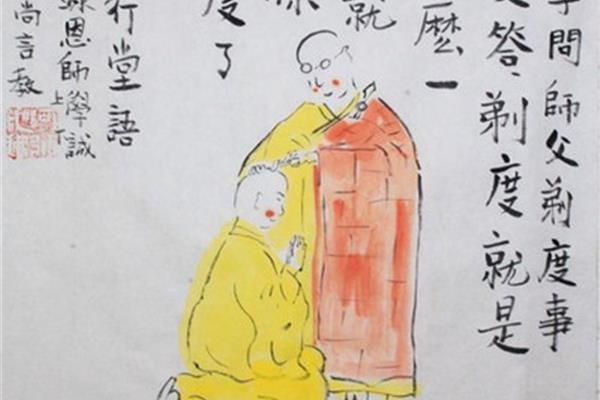 問師父剃度事
答、剃度就是
麼一
就
度了
行堂語
恩師上學下誠
尚言教